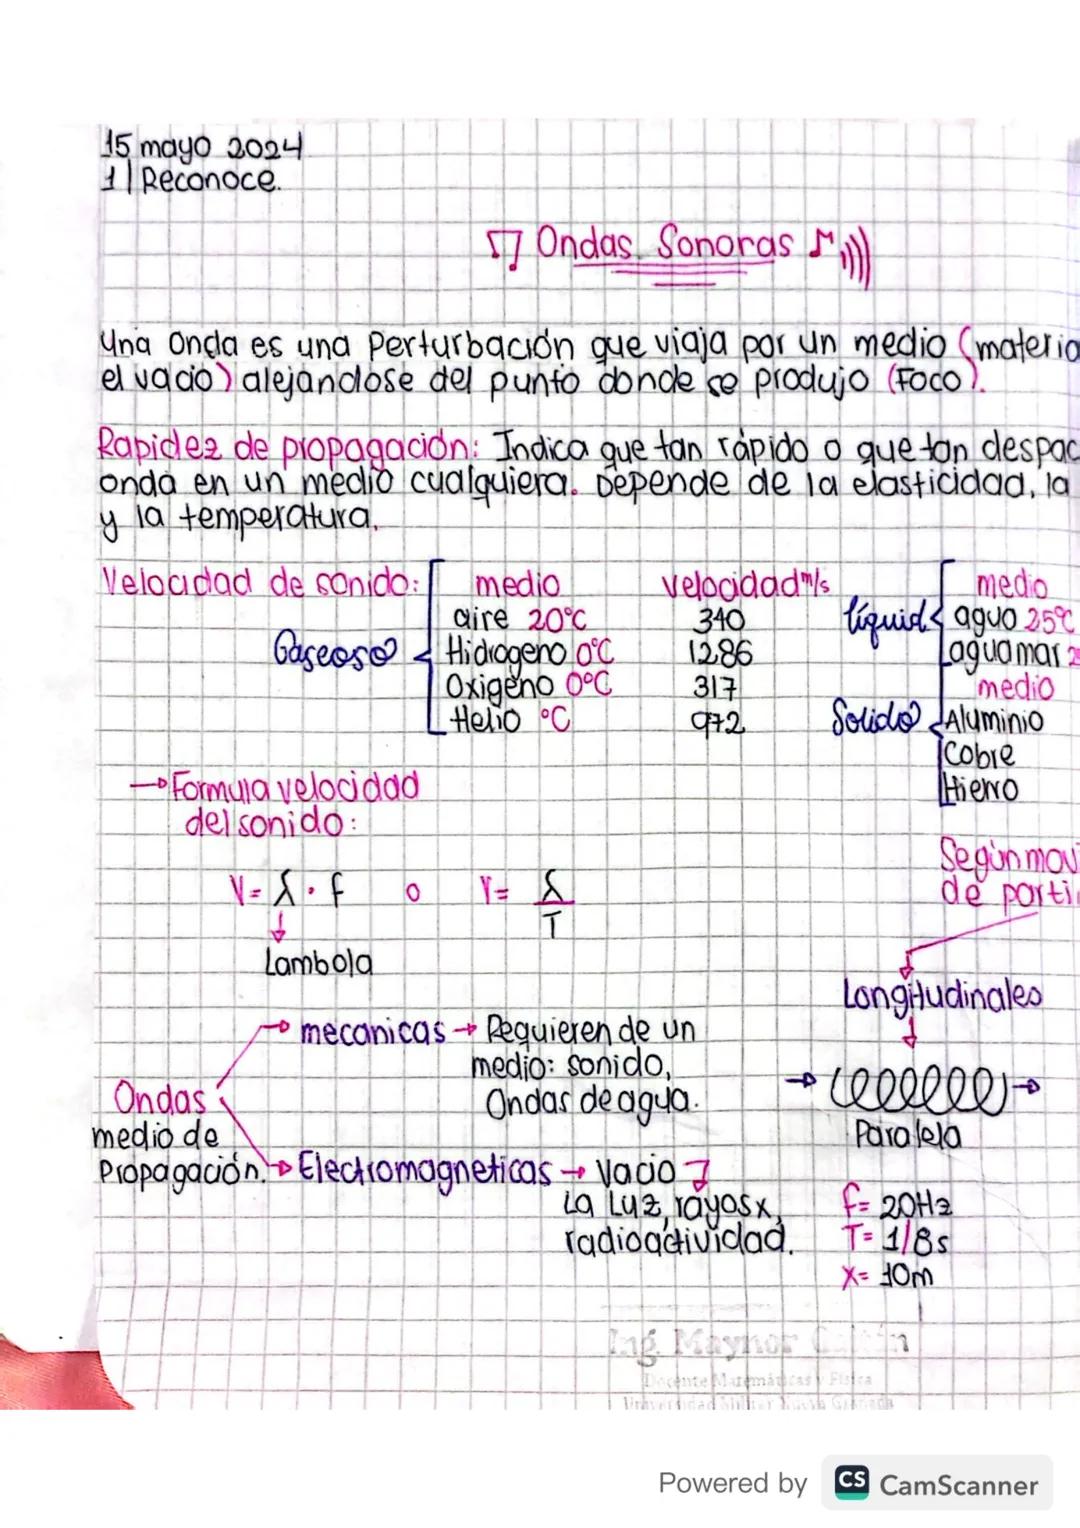 15 mayo 2024
1 | Reconoce.
Ondas Sonoras
Una Onda es una Perturbación que viaja por un medio (materia
el vacio) alejándose del punto donde se produjo (Foco).
Rapidez de propagación: Indica que tan rápido o que tan despac
onda en un medio cualquiera. Depende de la elasticidad, la
y la temperatura.
Velocidad de sonido: medio velocidad m/s
Gaseoso
aire 20°C 340
Hidrogeno 0°C 1286
Oxigeno 0°C 317
Helio °C 972
liquid
medio
agua 25°C
agua mar 2
Solido
medio
Aluminio
Cobre
Hierro
→ Formula velocidad
del sonido:
V= λ · f o V= λ/T
Lambola
Según movi
de parti
Longitudinales
Paralela
Ondas
medio de
Propagación.
mecanicas → Requieren de un
medio: sonido,
Ondas de agua.
Electromagneticas → Vacio
La Luz, rayos x,
radioactividad.
f= 20Hz
T= 1/8s
X= 10m
Ing. Maynor
Docente Matemáticas y Física
Universidad Militar Nueva Granada
Powered by CS CamScanner